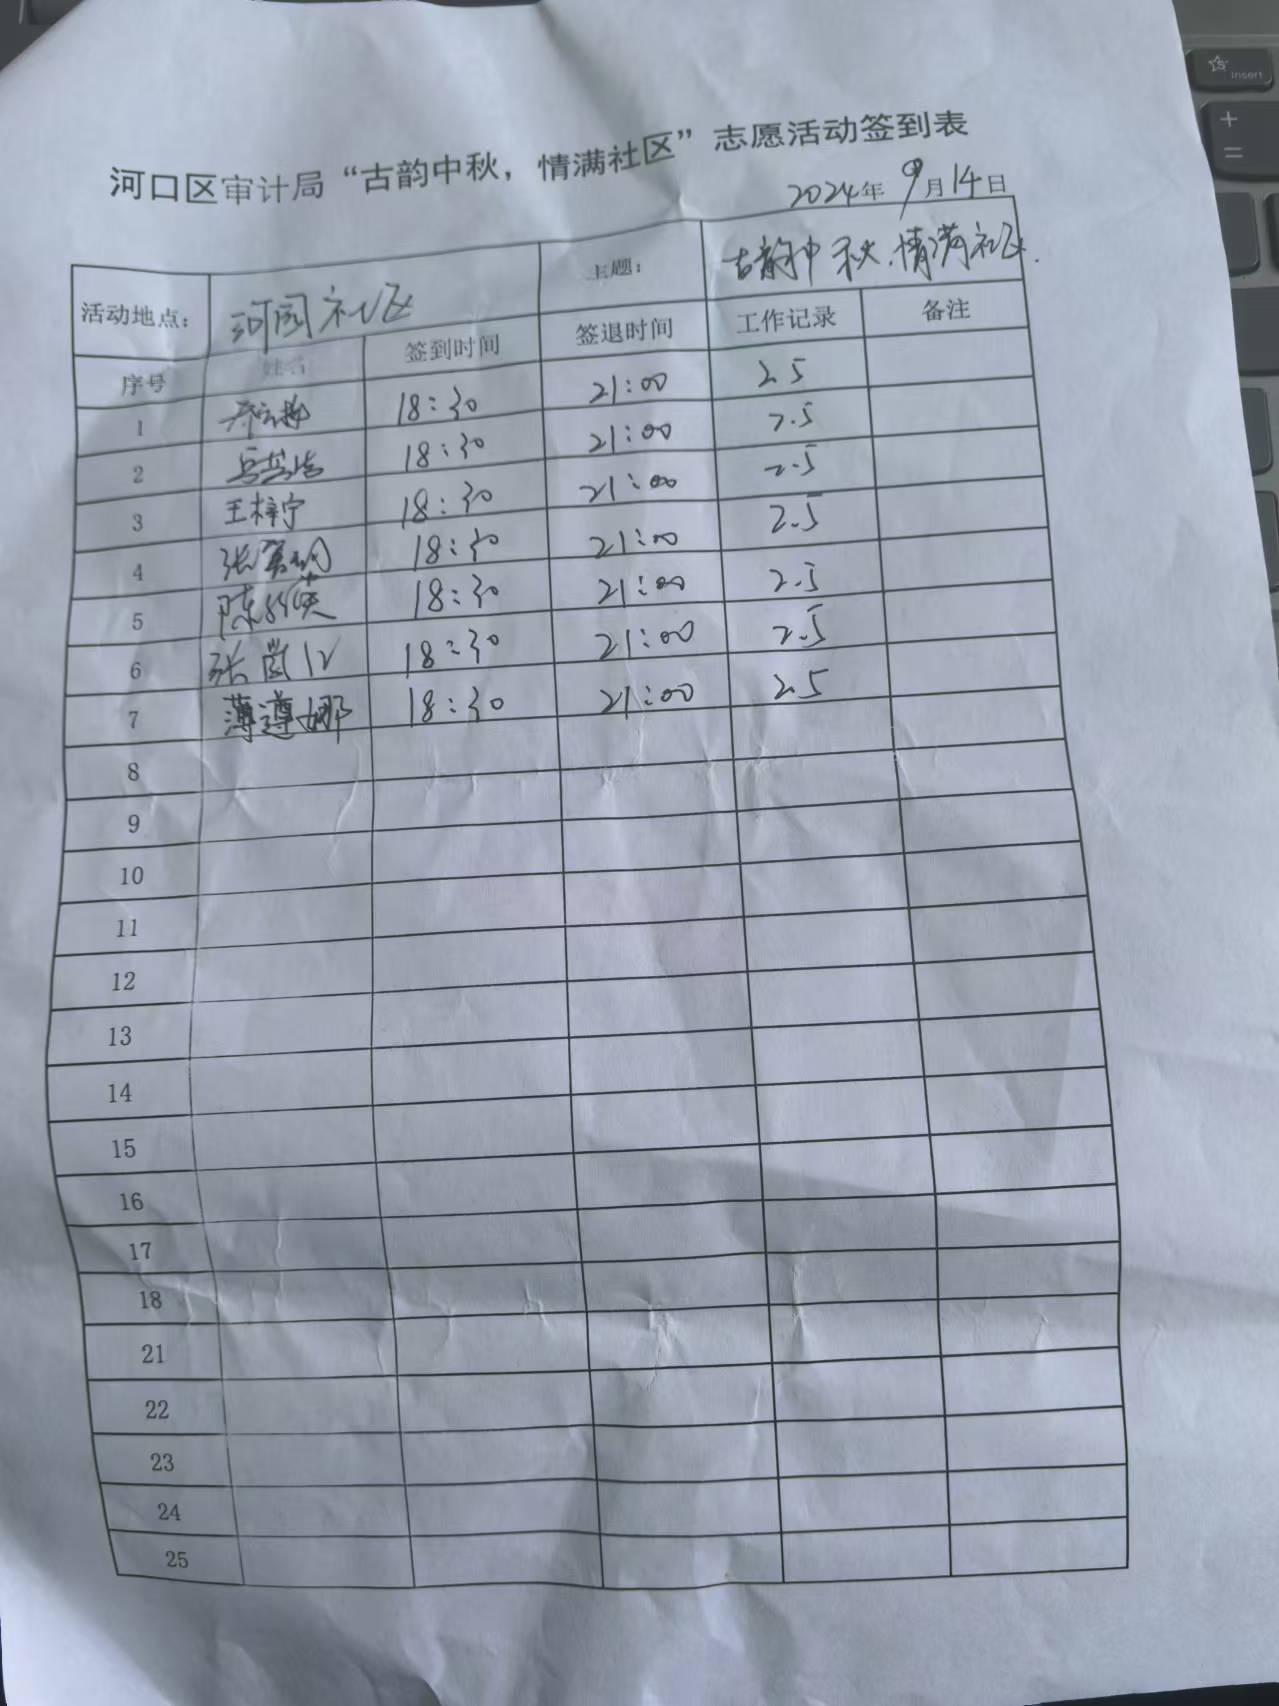 河口区审计局“古韵中秋，情满社区”志愿活动签到表
2024年 9月14日
活动地点： 河园社区 主题： 古韵中秋.情满社区.
序号 姓名 签到时间 签退时间 工作记录 备注
1 18:30 21:00 2.5
2 18:30 21:00 2.5
3 王梓宁 18:30 21:00 2.5
4 18:30 21:00 2.5
5 18:30 21:00 2.5
6 18:30 21:00 2.5
7 薄遵娜 18:30 21:00 2.5
8
9
10
11
12
13
14
15
16
17
18
21
22
23
24
25
insert
+
=